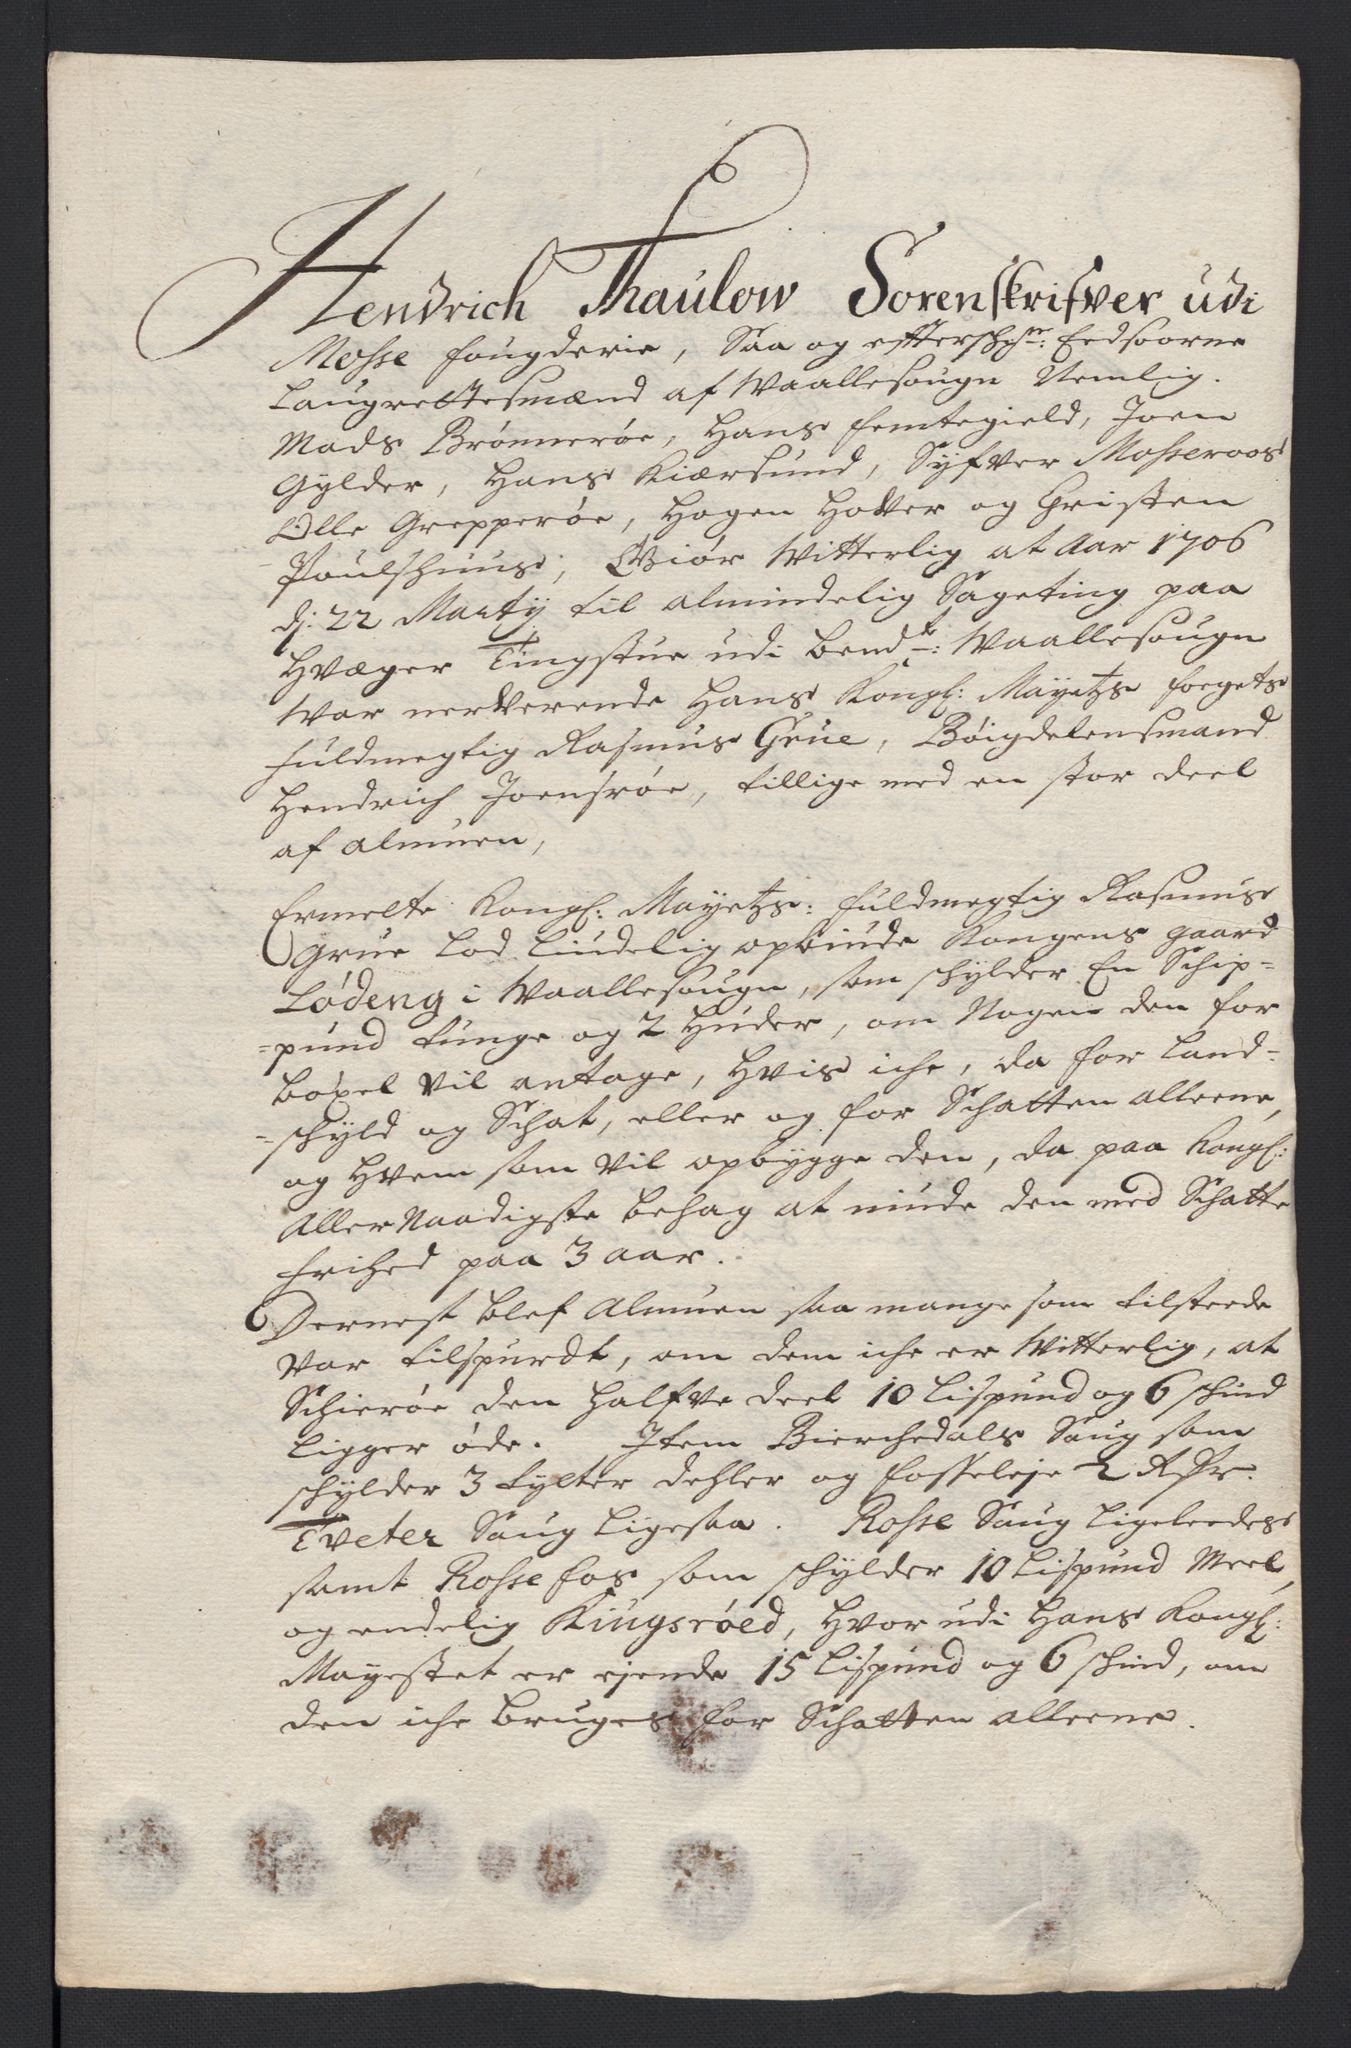 Hendrich Thaulow Sorenskrifver udi
Mosse fougderie, Saa og efterschr:ne Eedsoorne
Laugrettesmænd af Waallesougn Nemlig.
Mads Brønnerøe, Hans Femtegield, Joen
Gylder, Hans Kiærsund, Syfver Mosseroos
Olle Grepperøe, Hogen Hotver og Christen
Poulshuus, Giør Witterlig at Aar 1706
d: 22 Marty til almindelig Sageting paa
Hvæger Tingstue udi bend:te Waallesougn
War nerverende Hans Kongl: Mayetzs foegets
fuldmegtig Rasmus Grue, Bøigdelensmand
Hendrich Joensrøe, tillige med en stor deel
af almuen,
Ermelte Kongl: Mayetzs: fuldmegtig Rasmus
Grue Lod Liudelig opbiude Kongens gaard
Lødeng i Waallesougn, som schylder En Schip-
-pund tunge og 2 Huder, om Nogen den for
böxel vil antage, Hvis iche, da for Land-
-schyld og Schat, eller og for Schatten alleene,
og Hvem som vil opbygge den, da paa Kongl:
Aller Naadigste behag at niude den med Schatte
frihed paa 3 aar.
Dernest blef Almuen saa mange som tilsteede
var tilspurdt, om dem iche er Witterlig, at
Schierøe den Halfve deel 10 Lispund og 6 schind
Ligger øde. Item Bierchedals Saug som
schylder 3 tylter dehler og fosseleje 2 Rdr.
Tveter Saug Ligesaa. Rosse Saug Ligeleedes
samt Rosse fos som schylder 10 Lispund Meel,
og endelig Kingsrøed, Hvor udi Hans Kongl:
Mayestet er ejende 15 Lispund og 6 schind, om
den iche bruges for Schatten alleene.